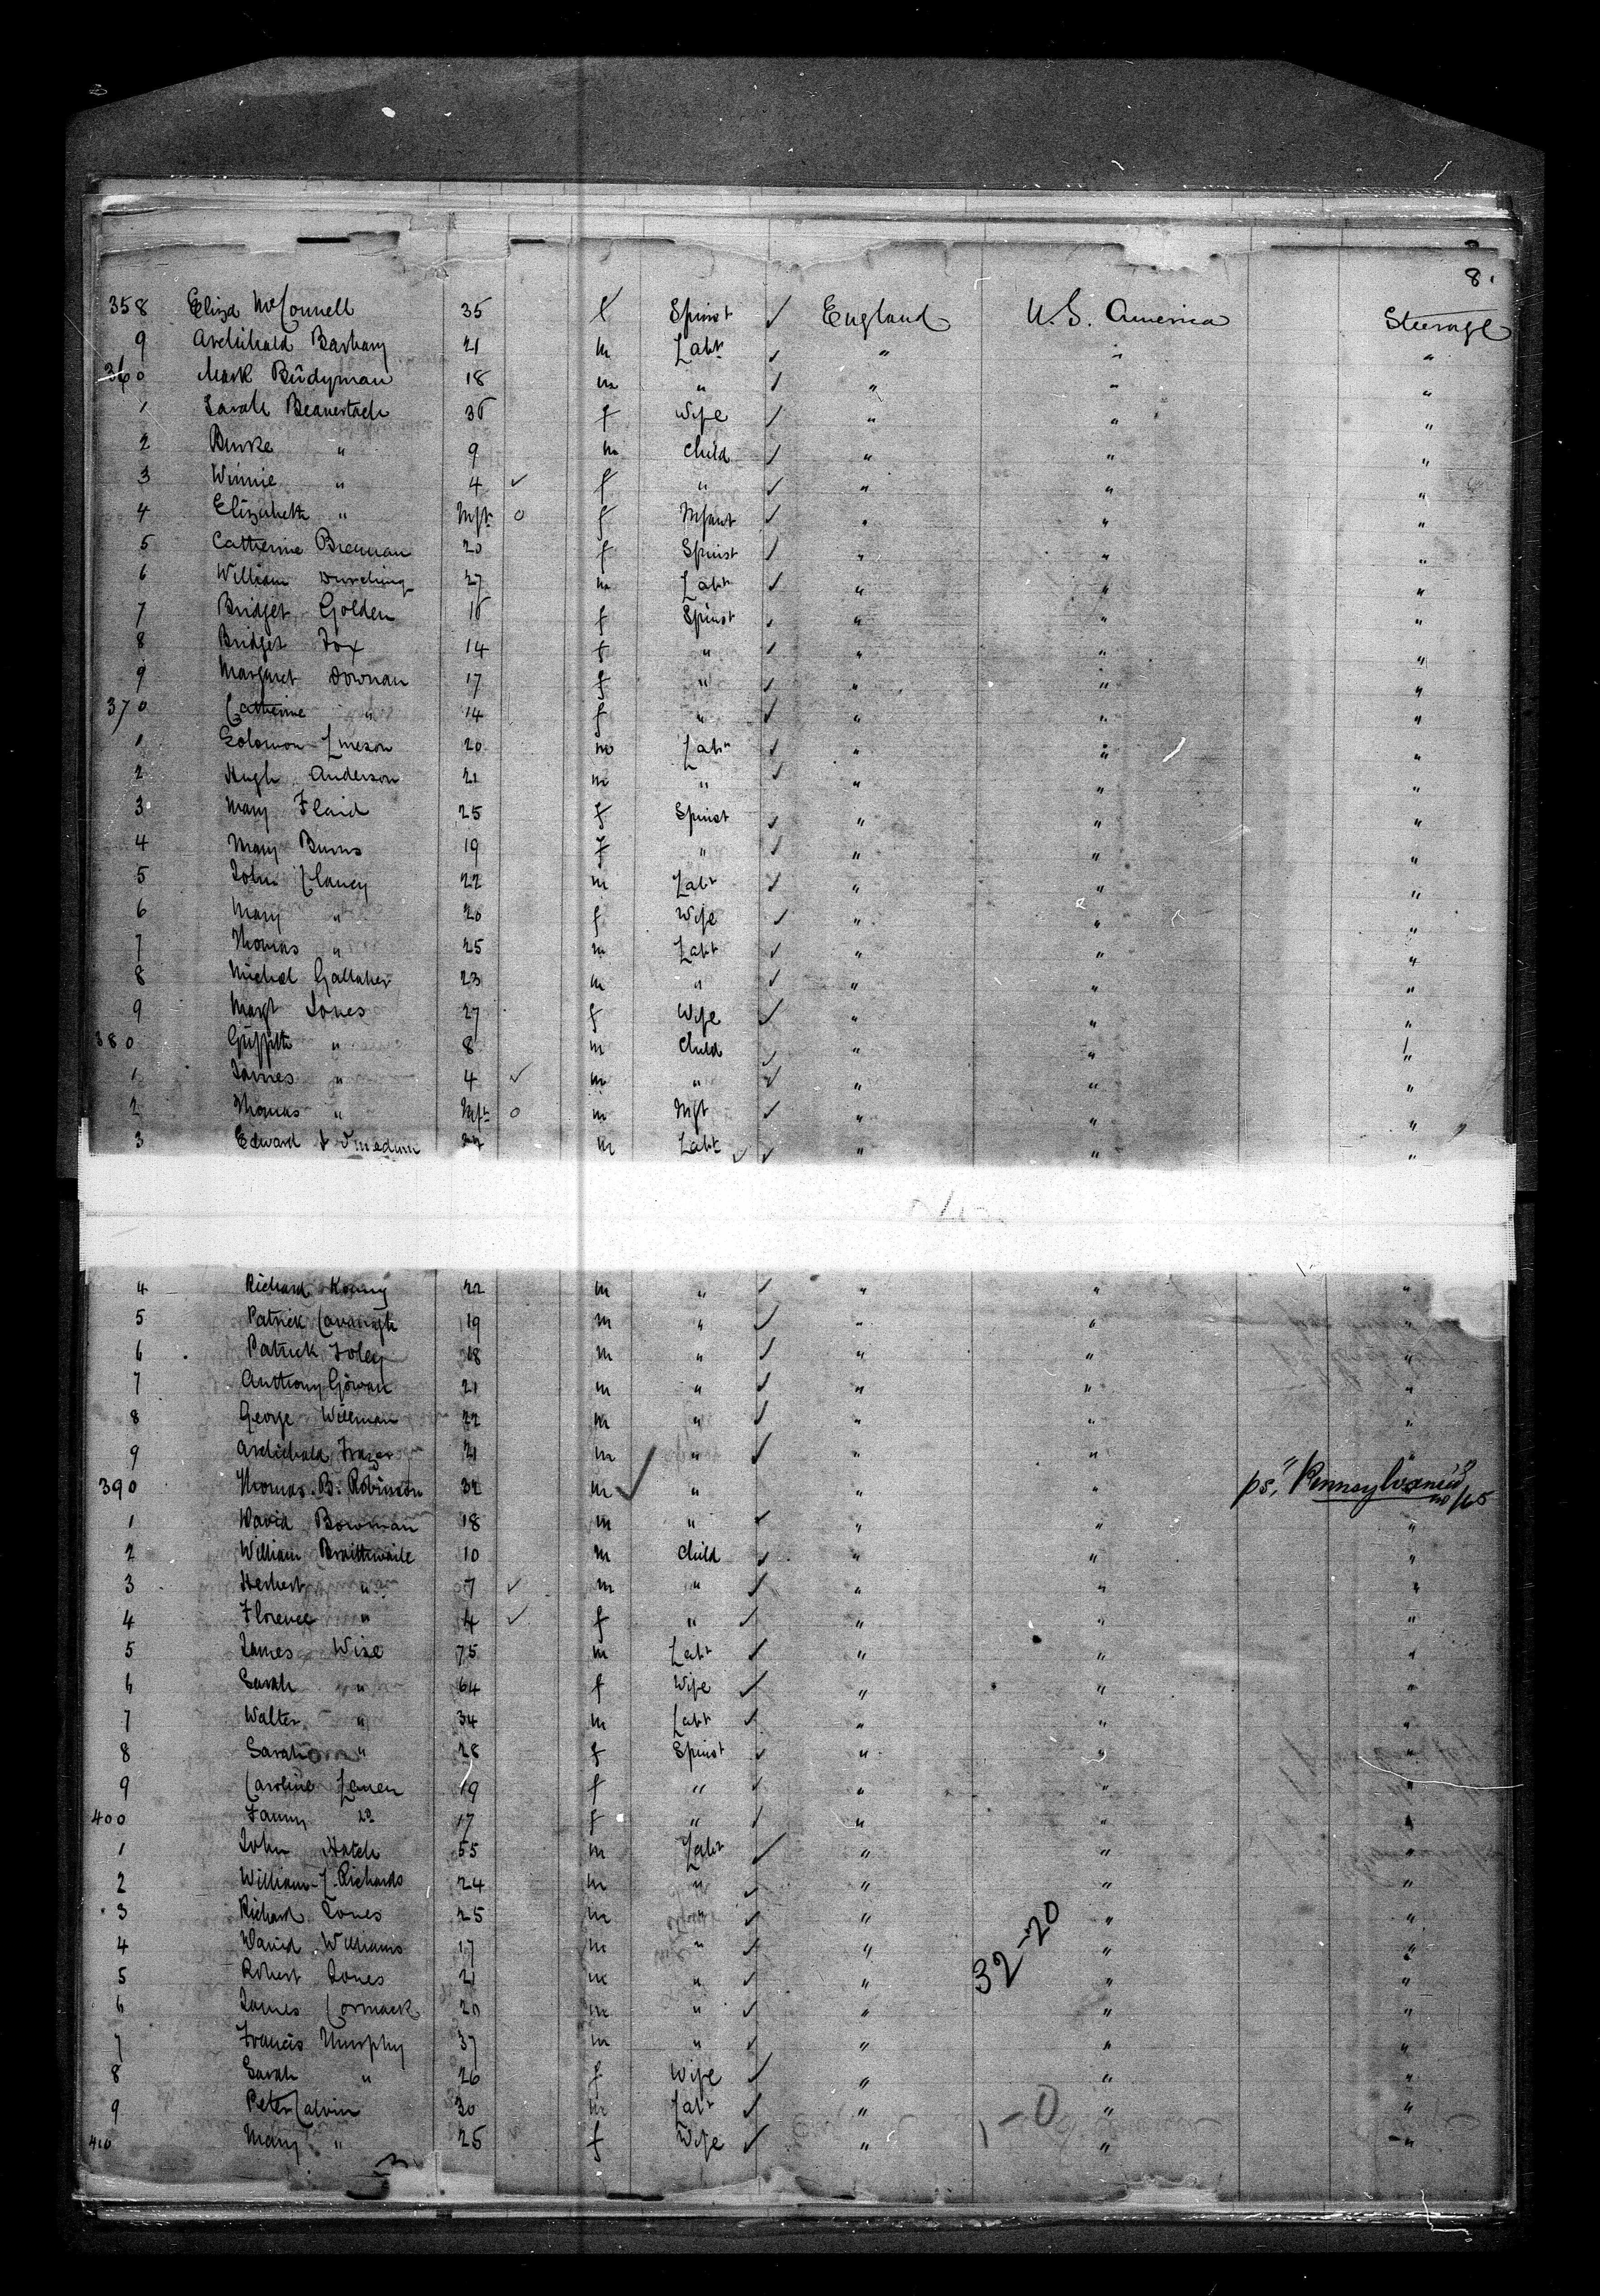 8.
358 Eliza McConnell 35 f Spinst ✓ England U.S. America Steerage
9 Archibald Barham 21 m Labr ✓ " " "
360 Mark Bridyman 18 m " ✓ " " "
1 Sarah Beaverstock 36 f Wife ✓ " " "
2 Burke " 9 m Child ✓ " " "
3 Winnie " 4 ✓ f " ✓ " " "
4 Elizabeth " Inft 0 f Infant ✓ " " "
5 Catherine Brennan 20 f Spinst ✓ " " "
6 William 27 m Labr ✓ " " "
7 Bridget Golden 18 f Spinst ✓ " " "
8 Bridget Fox 14 f " ✓ " " "
9 Margaret Downan 17 f " ✓ " " "
370 Catherine " 14 f " ✓ " " "
1 Solomon 20 m Labr ✓ " " "
2 Hugh Anderson 21 m " ✓ " " "
3 Mary Flaid 25 f Spinst ✓ " " "
4 Mary Burns 19 f " ✓ " " "
5 John Clancy 22 m Labr ✓ " " "
6 Mary " 20 f Wife ✓ " " "
7 Thomas " 25 m Labr ✓ " " "
8 Michal Gallaher 23 m " ✓ " " "
9 Margt Jones 27 f Wife ✓ " " "
380 Griffith " 8 m Child ✓ " " "
1 James " 4 ✓ m " ✓ " " "
2 Thomas " Inft 0 m Inft ✓ " " "
3 Edward m Labr ✓ ✓ " " "
4 Richard 22 m " ✓ " " "
5 Patrick Cavanagh 19 m " ✓ " " "
6 Patrick Foley 18 m " ✓ " " "
7 Anthony Gowan 21 m " ✓ " " "
8 George Willman 22 m " ✓ " " "
9 Archibald Frazer 21 m " ✓ " " "
390 Thomas B. Robinson 32 m ✓ " " " ps, "Pennsylvania" no/65
1 David Bowman 18 m " ✓ " " "
2 William Braithwaite 10 m Child ✓ " " "
3 Herbert " 7 ✓ m " ✓ " " "
4 Florence " 4 ✓ f " ✓ " " "
5 James Wise 75 m Labr ✓ " " "
6 Sarah " 64 f Wife ✓ " " "
7 Walter " 34 m Labr ✓ " " "
8 Sarah " 28 f Spinst ✓ " " "
9 Caroline 19 f " ✓ " " "
400 Fanny Do 17 f " ✓ " " "
1 John Hatch 55 m Labr ✓ " " "
2 William L. Richards 24 m " ✓ " " "
3 Richard Jones 25 m " ✓ " " "
4 David Williams 17 m " ✓ " " "
32-20
5 Robert Jones 21 m " ✓ " " "
6 James Cormack 20 m " ✓ " " "
7 Francis Murphy 37 m " ✓ " " "
8 Sarah " 26 f Wife ✓ " " "
9 Peter Calvin 30 m Labr ✓ " " "
1-0
410 Mary " 25 f Wife ✓ " " "